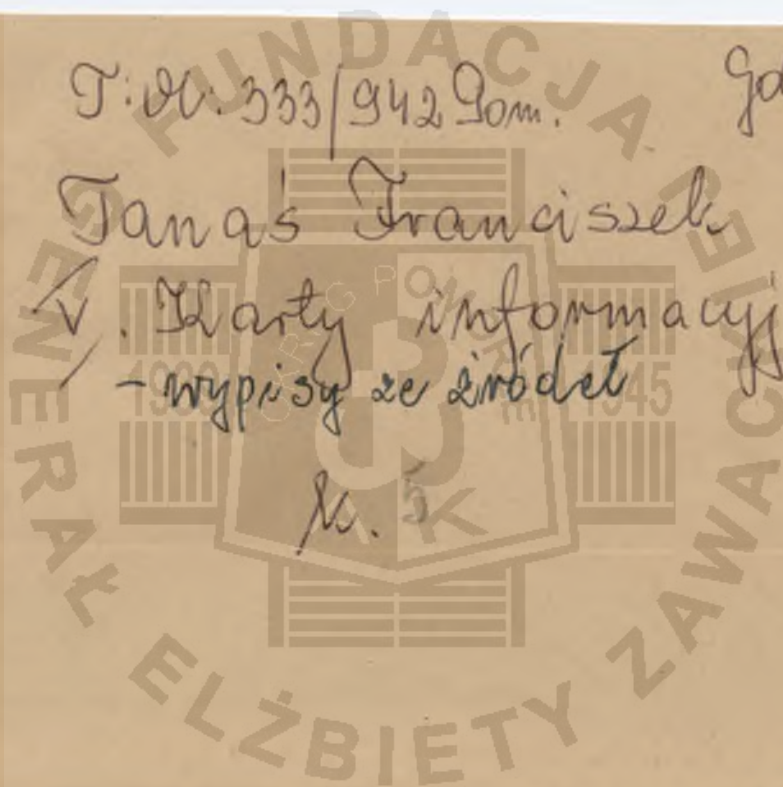 T: M: 333/942 Pom. Gd
Tanaś Franciszek
V. Karty informacyj
- wypisy ze źródeł
k. 5
FUNDACJA
GENERAŁ ELŻBIETY ZAWAC
OKRĘG POMORZE
1939 1945
AK